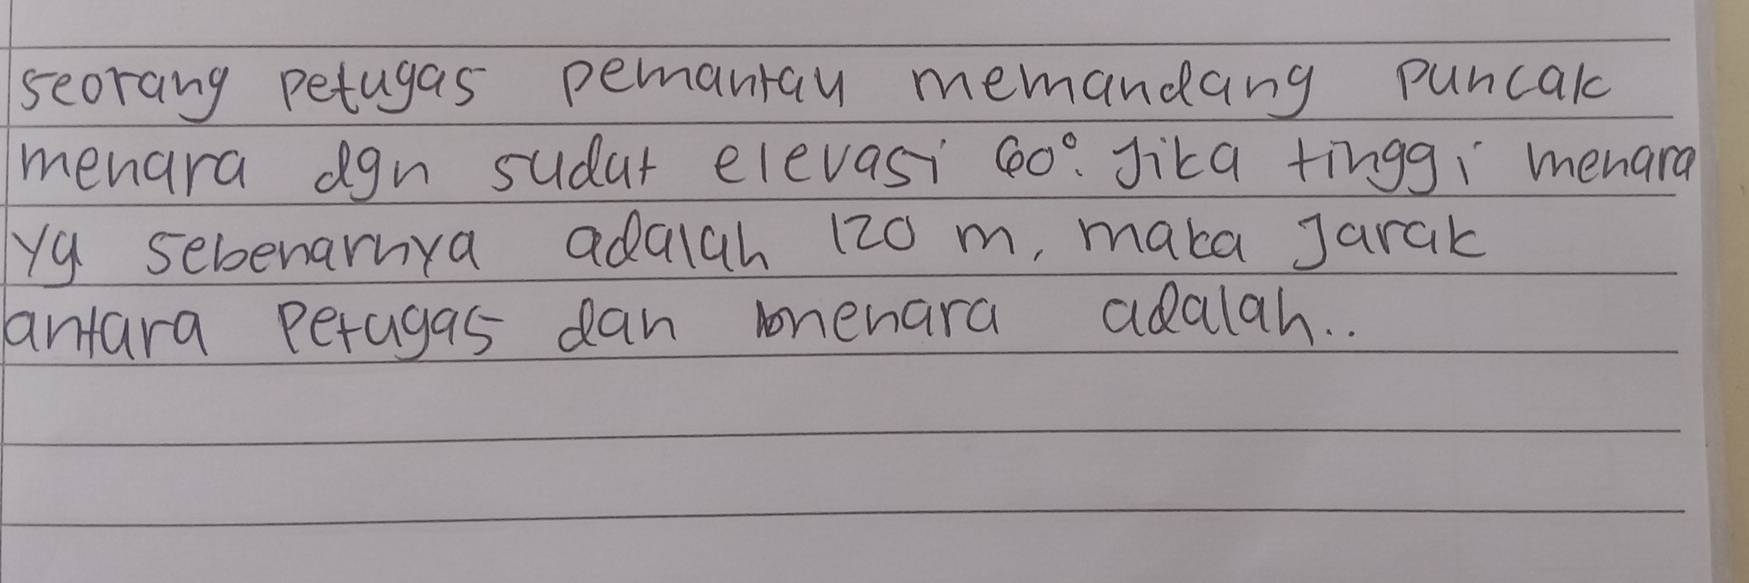 seorang petugas pemantau memandang puncak
menara dgn sudut elevasi 60°. Jika tinggi menara
yg sebenarnya adalah 120 m, maka Jarak
antara petugas dan menara adalah..